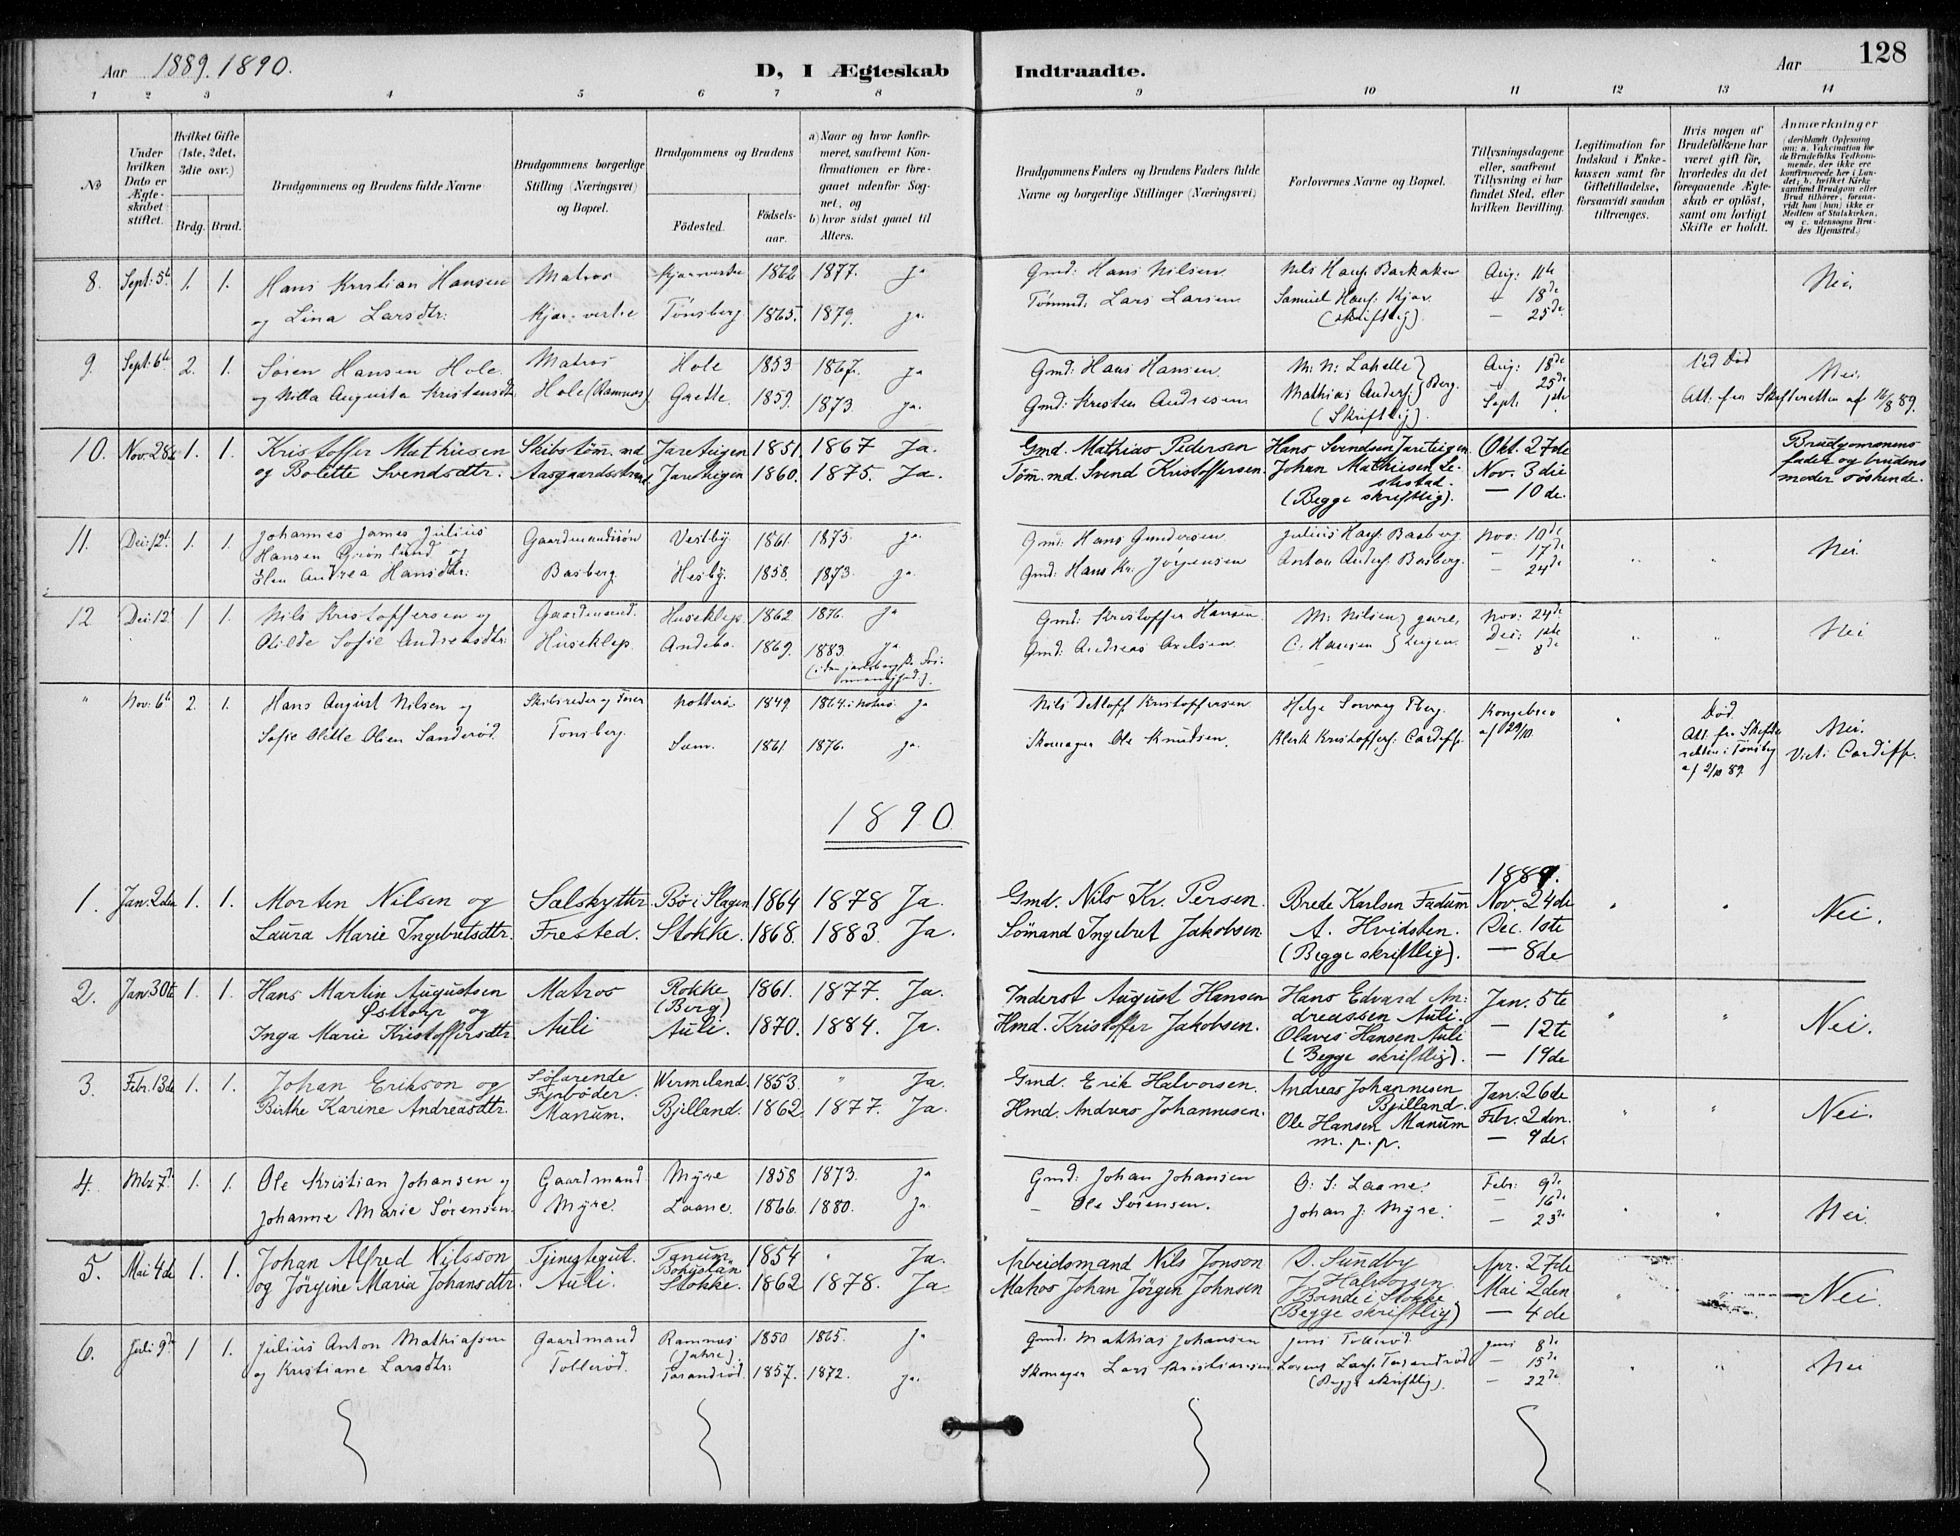 Aar 1889. 1890.
D, I Ægteskab
Indtraadte.
Aar
128
1 2 3 4 5 6 7 8 9 10 11 12 13 14
No
Under hvilken Dato er Ægteskabet stiftet.
Hvilket Gifte (1ste, 2det, 3die osv.)
Brdg. Brud.
Brudgommens og Brudens fulde Navne
Brudgommens borgerlige Stilling (Næringsvei) og Bopæl.
Brudgommens og Brudens
Fødested.
Fødselsaar.
a) Naar og hvor konfirmeret, saafremt Konfirmationen er foregaaet udenfor Sognet, og
b) hvor sidst gaaet til Alters.
Brudgommens Faders og Brudens Faders fulde Navne og borgerlige Stillinger (Næringsvei)
Forlovernes Navne og Bopæl.
Tillysningsdagene eller, saafremt Tillysning ei har fundet Sted, efter hvilken Bevilling.
Legitimation for Indskud i Enkekassen samt for Giftetilladelse, forsaavidt saadan tiltrænges.
Hvis nogen af Brudefolkene har været gift før, hvorledes da det foregaaende Ægteskab er opløst, samt om lovligt Skifte er holdt.
Anmærkninger
8. Sept: 5te 1. 1. Hans Kristian Hansen Matros 1862 1877. ja Gmd: Hans Nilsen Nils Hans: Barkaker Aug: 11te Nei.
og Lina Larsdtr: Tønsberg 1865. 1879. ja. Tømmd. Lars Larsen. Samuel Hans: Kjær – 18de
(Skriftlig). – 25de
9. Sept: 6te 2. 1. Søren Hansen Hole. Matros Hole 1853 1867. ja Gmd: Hans Hansen. Aug: 18de Ved Død Nei.
og Milla Augusta Kristensdtr. Hole (Ramnes) 1859. 1873. ja. Gmd: Kristen Andresen Mathias Anders: Berg. – 25de Att. fra Skifteretten af 16/8 89.
(Skriftlig). Sept. 1ste
10. Nov. 28de 1. 1. Kristoffer Mathiesen Skibstøm. md. Jareteigen 1851. 1867 Ja. Gmd. Mathias Pedersen Hans Svendsen Jareteigen Okt. 27de Brudgommens
og Bolette Svendsdtr. Aasgaardsstrand. Jareteigen 1860. 1875. Ja. Tøm. md. Svend Kristoffersen. Johan Mathiesen Nov. 3die fader og brudens
(Begge skriftlig). – 10de. moder søskende.
11. Dec: 12te 1. 1. Johannes James Julius Gaardmandssøn Vestby 1861 1875. ja. Gmd: Hans Gundersen Julius Hans: Basberg Nov: 10de Nei
Hansen Grønlund og – 17de
Elen Andrea Hansdtr: Basberg. Hesby. 1858. 1873. ja. Gmd: Hans Kr. Jørgensen Anton Anders: Basberg. – 24de
12 Dec: 12te 1 1. Nils Kristoffersen og Gaardmand. Huseklep. 1862 1876. ja Gmd: Kristoffer Hansen. M: Nilsen Nov: 24de Nei
Otilde Sofie Andreasdtr: Huseklep. Andebo. 1869. 1883 ja Gmd: Andreas Axelsen C. Hansen Dec: 1ste
8de
" Nov: 6te 2. 1. Hans August Nilsen og Skibsreder og Fører Nøtterø 1849 1864 i Nøtterø ja Nils Detloff Kristoffersen Helge Sorvag Tberg. Kongebrev Død. Nei.
Sofie Olette Olsen Sanderød. Tønsberg. Sem. 1861 1876. ja. Skomager Ole Knudsen. Klerk Kristoffers: Cardiff. af 29/10. Att. fra Skifteretten i Tønsberg af 2/10 89. Viet i Cardiff.
1890
1889.
1. Jan. 2den 1. 1. Morten Nilsen og Sælskytter Bø i Slagen 1864 1878 Ja. Gmd. Nils Kr. Persen. Brede Karlsen Fadum Nov. 24de Nei.
Laura Marie Ingebretsdtr. Frested. Stokke. 1868. 1883. Ja. Sømand Ingebret Jakobsen. A. Hvidsten. Dec. 1ste
(Begge skriftlig). – 8de
2. Jan. 30te 1. 1. Hans Martin Augustsen Matros Rokke 1861. 1877. Ja. Inderst August Hansen Hans Edvard An: Jan. 5te Nei.
Østtorp og (Berg) dreassen Auli.
Inga Marie Kristoffersdtr. Auli Auli. 1870. 1884. Ja. Hmd. Kristoffer Jakobsen. Olaves Hansen Auli – 12te
(Begge skriftlig). – 19de
3. Febr. 13de 1. 1. Johan Erikson og Søfarende Wermeland. 1853. " Ja. Gmd. Erik Halvorsen. Andreas Johannesen Jan. 26de Nei.
Fyrbøder. Bjelland.
Birthe Karine Andreasdtr. Manum. Bjelland. 1862 1877. Ja. Hmd. Andreas Johannesen. Ole Hansen Manum Febr. 2den.
m. p. p. – 9de.
4. Mts 7de 1. 1. Ole Kristian Johansen og Gaardmand Myre 1858 1873. ja Gmd: Johan Johansen O: S: Laane. Febr: 9de Nei.
Johanne Marie Sørensen. Myre. Laane. 1866. 1880. ja. – Ole Sørensen. Johan J: Myre. – 16de
– 23de
5. Mai 4de 1. 1. Johan Alfred Nilsson Tjenestegut. Tanum 1854 " Ja. Arbeidsmand Nils Jonson D. Sundby Apr. 27de Nei.
Bohuslän
og Jørgine Maria Johansdtr. Auli. Stokke. 1862 1878. Ja. Matros Johan Jørgen Johnsen J. Halvorsen Mai 2den
Bonde i Stokke
(Begge skriftlig) – 4de
6. Juli 9de 1 1. Julius Anton Mathiassen Gaardmand Ramnes 1850 1865. ja Gmd. Mathias Johansen Jens Tollerød. Juni 8de Nei
(Jahre).
og Kristiane Larsdtr: Tollerød. Tarandrød. 1857. 1872. ja. Skomager Lars Kristiansen Lorens Lars: Tarandrød – 15de
(Begge skriftlig). – 22de